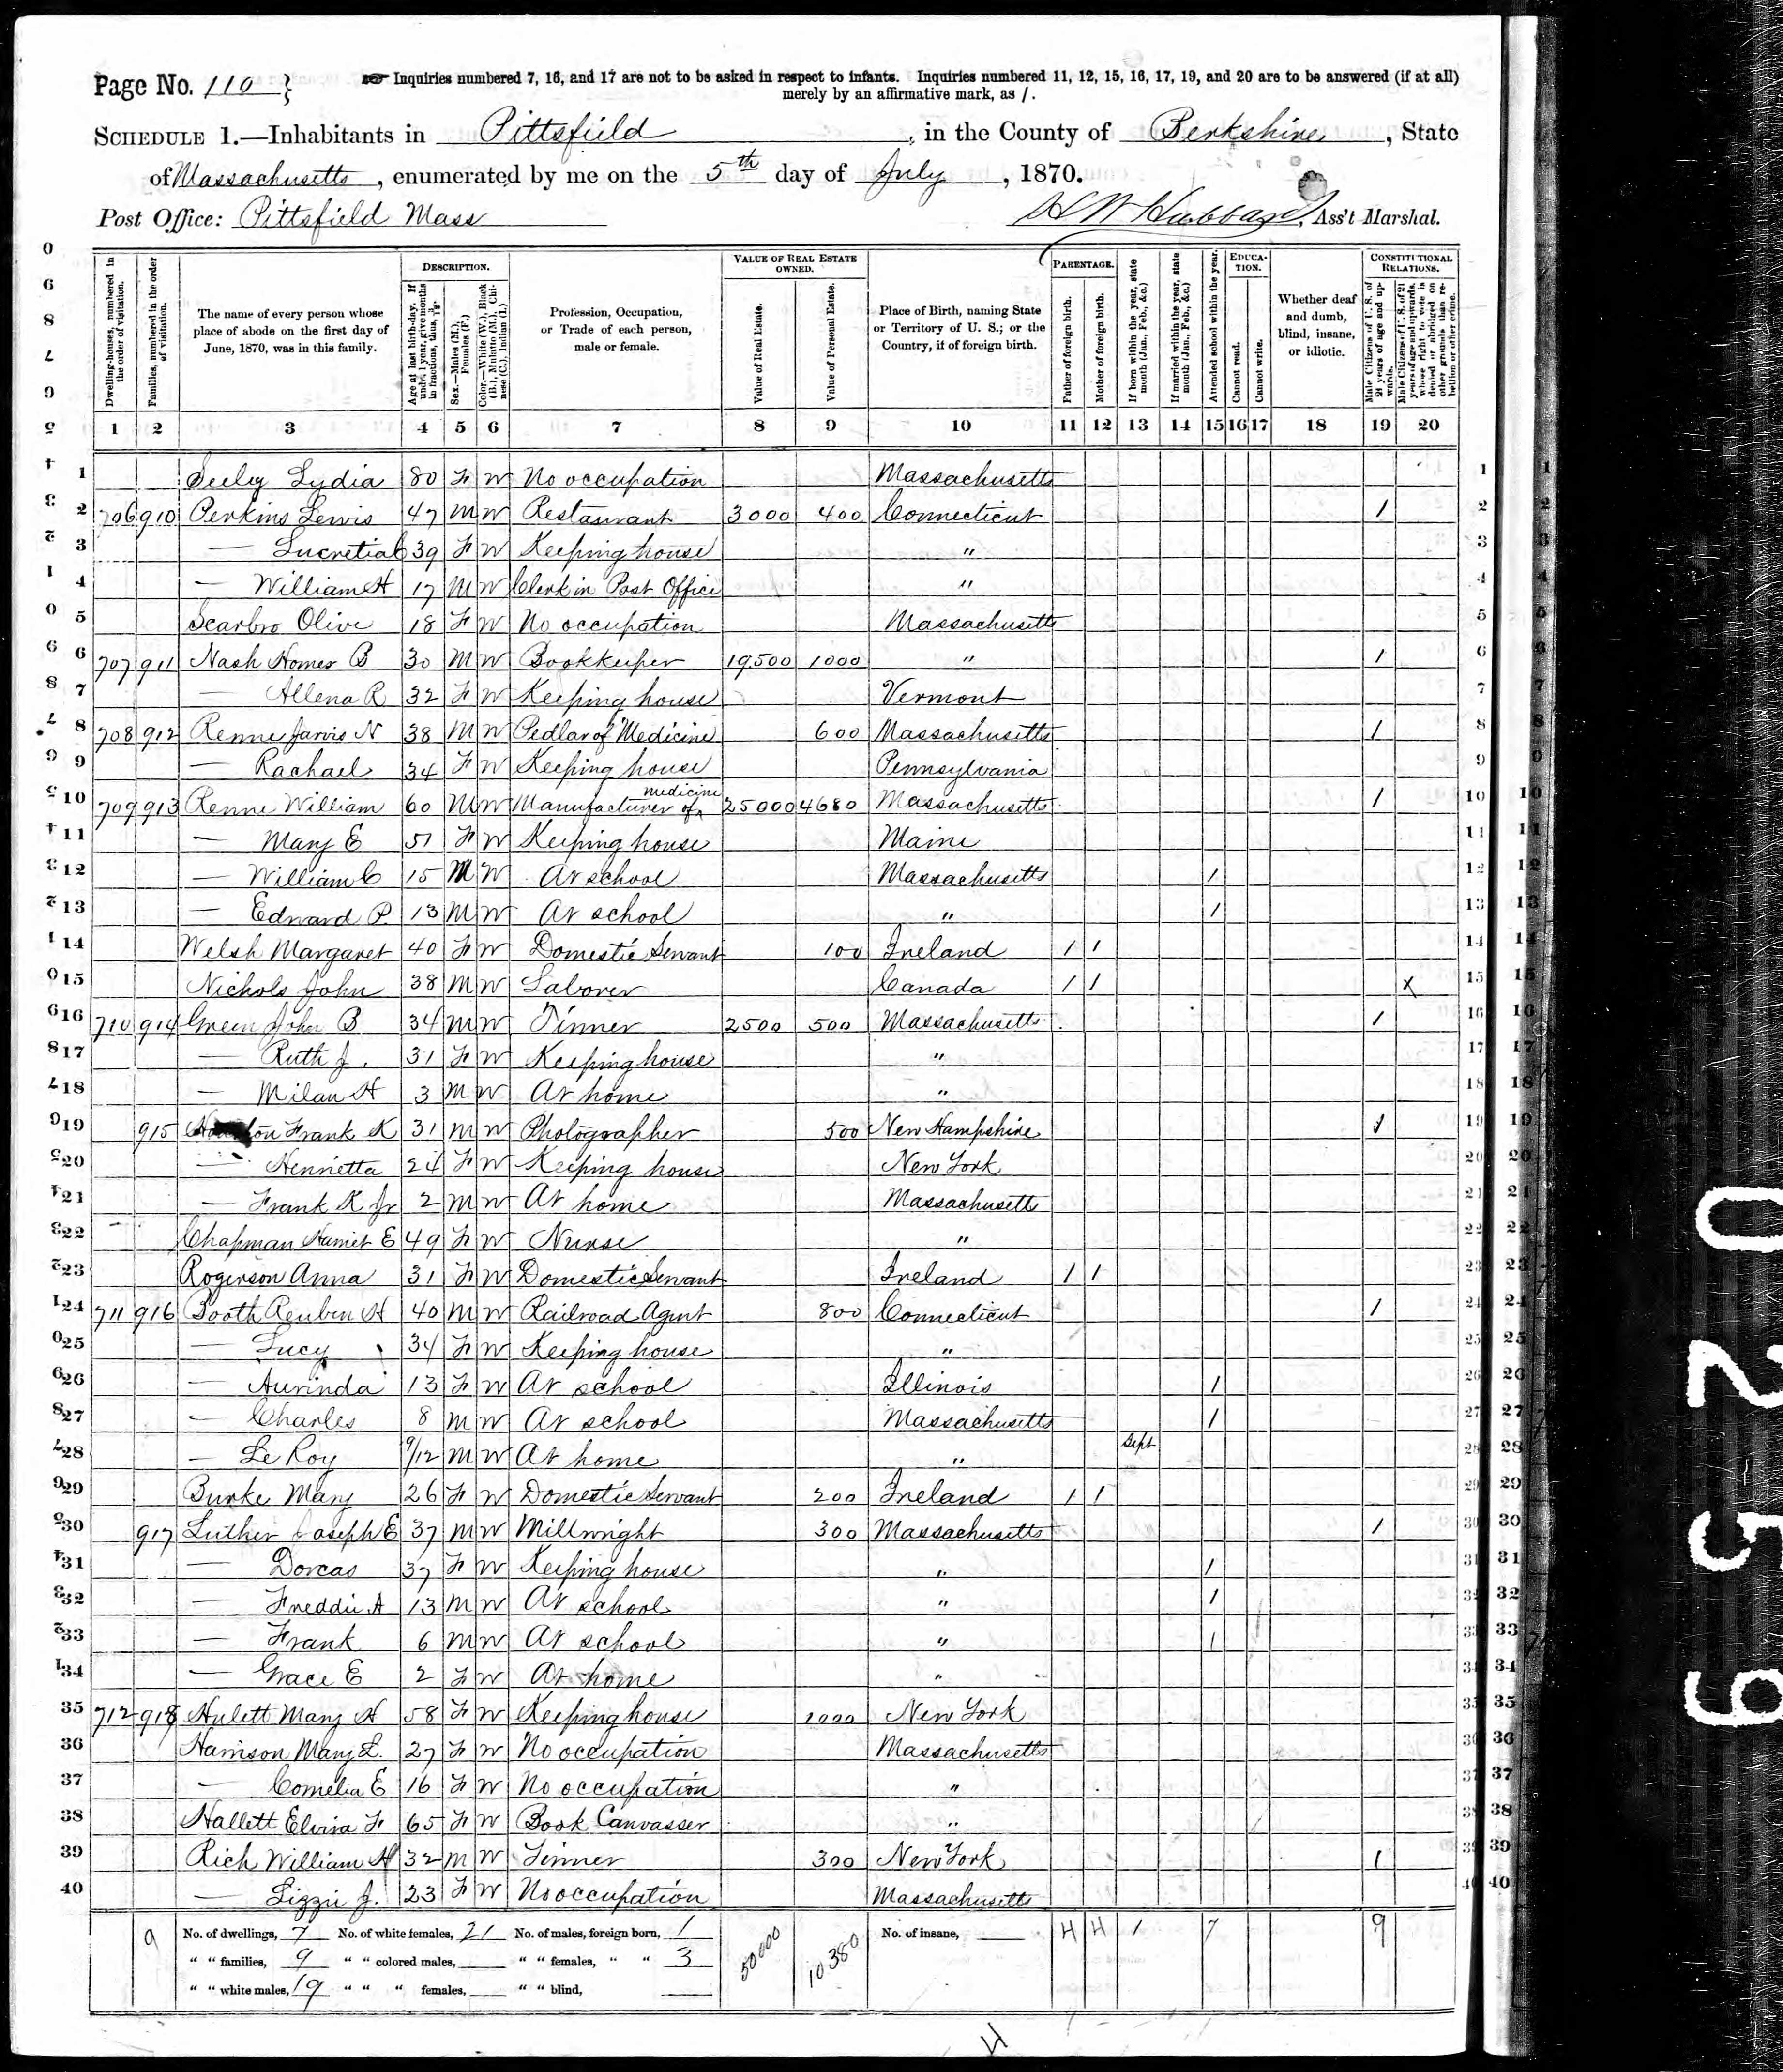 Page No. 110
Inquiries numbered 7, 16, and 17 are not to be asked in respect to infants. Inquiries numbered 11, 12, 15, 16, 17, 19, and 20 are to be answered (if at all)
merely by an affirmative mark, as /.
SCHEDULE 1.—Inhabitants in Pittsfield, in the County of Berkshire, State
of Massachusetts, enumerated by me on the 5th day of July, 1870.
Post Office: Pittsfield Mass H W Hubbard, Ass't Marshal.
Dwelling-houses, numbered in the order of visitation.
Families, numbered in the order of visitation.
The name of every person whose place of abode on the first day of June, 1870, was in this family.
DESCRIPTION.
Age at last birth-day. If under 1 year, give months in fractions, thus, 3/12.
Sex.—Males (M.), Females (F.)
Color.—White (W.), Black (B.), Mulatto (M.), Chinese (C.), Indian (I.)
Profession, Occupation, or Trade of each person, male or female.
VALUE OF REAL ESTATE OWNED.
Value of Real Estate.
Value of Personal Estate.
Place of Birth, naming State or Territory of U. S.; or the Country, if of foreign birth.
PARENTAGE.
Father of foreign birth.
Mother of foreign birth.
If born within the year, state month (Jan., Feb., &c.)
If married within the year, state month (Jan., Feb., &c.)
Attended school within the year.
EDUCATION.
Cannot read.
Cannot write.
Whether deaf and dumb, blind, insane, or idiotic.
CONSTITUTIONAL RELATIONS.
Male Citizens of U. S. of 21 years of age and upwards.
Male Citizens of U. S. of 21 years of age and upwards, whose right to vote is denied or abridged on other grounds than rebellion or other crime.
1 2 3 4 5 6 7 8 9 10 11 12 13 14 15 16 17 18 19 20
1 Seeley Lydia 80 F W No occupation Massachusetts 1
2 706 910 Perkins Lewis 47 M W Restaurant 3000 400 Connecticut / 2
3 — Lucretia C 39 F W Keeping house " 3
4 — William H 17 M W Clerk in Post Office " 4
5 Scarbro Olive 18 F W No occupation Massachusetts 5
6 707 911 Nash Homer B 30 M W Bookkeeper 19500 1000 " / 6
7 — Allena R 32 F W Keeping house Vermont 7
8 708 912 Renne Jarvis N 38 M W Pedlar of Medicine 600 Massachusetts / 8
9 — Rachael 34 F W Keeping house Pennsylvania 9
10 709 913 Renne William 60 M W Manufacturer of medicine 25000 4680 Massachusetts / 10
11 — Mary E 51 F W Keeping house Maine 11
12 — William C 15 M W At school Massachusetts / 12
13 — Edward P. 13 M W At school " / 13
14 Welsh Margaret 40 F W Domestic Servant 100 Ireland / / 14
15 Nichols John 38 M W Laborer Canada / / X 15
16 710 914 Green John B 34 M W Tinner 2500 500 Massachusetts / 16
17 — Ruth J. 31 F W Keeping house " 17
18 — Milan H 3 M W At home " 18
19 915 Frank K 31 M W Photographer 500 New Hampshire / 19
20 — Henrietta 24 F W Keeping house New York 20
21 — Frank K Jr 2 M W At home Massachusetts 21
22 Chapman Harriet E 49 F W Nurse " 22
23 Rogerson Anna 31 F W Domestic Servant Ireland / / 23
24 711 916 Booth Reuben H 40 M W Railroad Agent 800 Connecticut / 24
25 — Lucy 34 F W Keeping house " 25
26 — Aurinda 13 F W At school Illinois / 26
27 — Charles 8 M W At school Massachusetts / 27
28 — Le Roy 9/12 M W At home " Sept 28
29 Burke Mary 26 F W Domestic Servant 200 Ireland / / 29
30 917 Luther Joseph E 37 M W Millwright 300 Massachusetts / 30
31 — Dorcas 37 F W Keeping house " / 31
32 — Freddie A 13 M W At school " / 32
33 — Frank 6 M W At school " / 33
34 — Grace E 2 F W At home " 34
35 712 918 Hulett Mary H 58 F W Keeping house 1000 New York 35
36 Harrison Mary L. 27 F W No occupation Massachusetts 36
37 — Cornelia E 16 F W No occupation " 37
38 Hallett Elvira F 65 F W Book Canvasser " 38
39 Rich William H 32 M W Tinner 300 New York / 39
40 — Lizzie J. 23 F W No occupation Massachusetts 40
9 No. of dwellings, 7 No. of white females, 21 No. of males, foreign born, 1 50000 10380 No. of insane, 4 4 1 7 9
" " families, 9 " " colored males, " " females, " " 3
" " white males, 19 " " " females, " " blind,
025 59